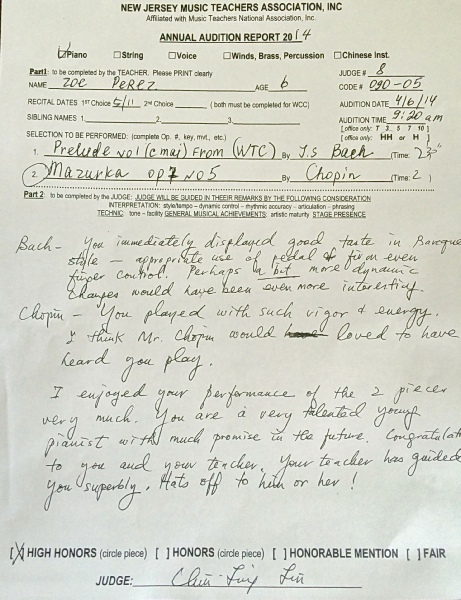 NEW JERSEY MUSIC TEACHERS ASSOCIATION, INC
Affiliated with Music Teachers National Association, Inc.
ANNUAL AUDITION REPORT 2014
☑Piano ☐String ☐Voice ☐Winds, Brass, Percussion ☐Chinese Inst.
Part1: to be completed by the TEACHER. Please PRINT clearly JUDGE # 8
NAME ZOE PEREZ AGE 6 CODE # 090-05
RECITAL DATES 1st Choice 5/11 2nd Choice ( both must be completed for WCC) AUDITION DATE 4/6/14
SIBLING NAMES 1. 2. 3. AUDITION TIME 9:20 am
[office only: T 3 5 7 10]
SELECTION TO BE PERFORMED: (complete Op. #, key, mvt., etc.) [office only: HH or H]
1. Prelude no1 (c maj) From (WTC) By J.S Bach (Time:
2. Mazurka op7 no5 By Chopin (Time: 2 )
Part 2 to be completed by the JUDGE: JUDGE WILL BE GUIDED IN THEEIR REMARKS BY THE FOLLOWING CONSIDERATION
INTERPRETATION: style/tempo – dynamic control – rhythmic accuracy – articulation – phrasing
TECHNIC: tone – facility GENERAL MUSICAL ACHIEVEMENTS: artistic maturity STAGE PRESENCE
Bach – You immediately displayed good taste in Baroque
style – appropriate use of pedal & firm even
finger control. Perhaps a bit more dynamic
changes would have been even more interesting.
Chopin – You played with such vigor & energy.
I think Mr. Chopin would have loved to have
heard you play.
I enjoyed your performance of the 2 pieces
very much. You are a very talented young
pianist with much promise in the future. Congratulat
to you and your teacher. Your teacher has guided
you superbly. Hats off to him or her!
[X] HIGH HONORS (circle piece) [ ] HONORS (circle piece) [ ] HONORABLE MENTION [ ] FAIR
JUDGE: